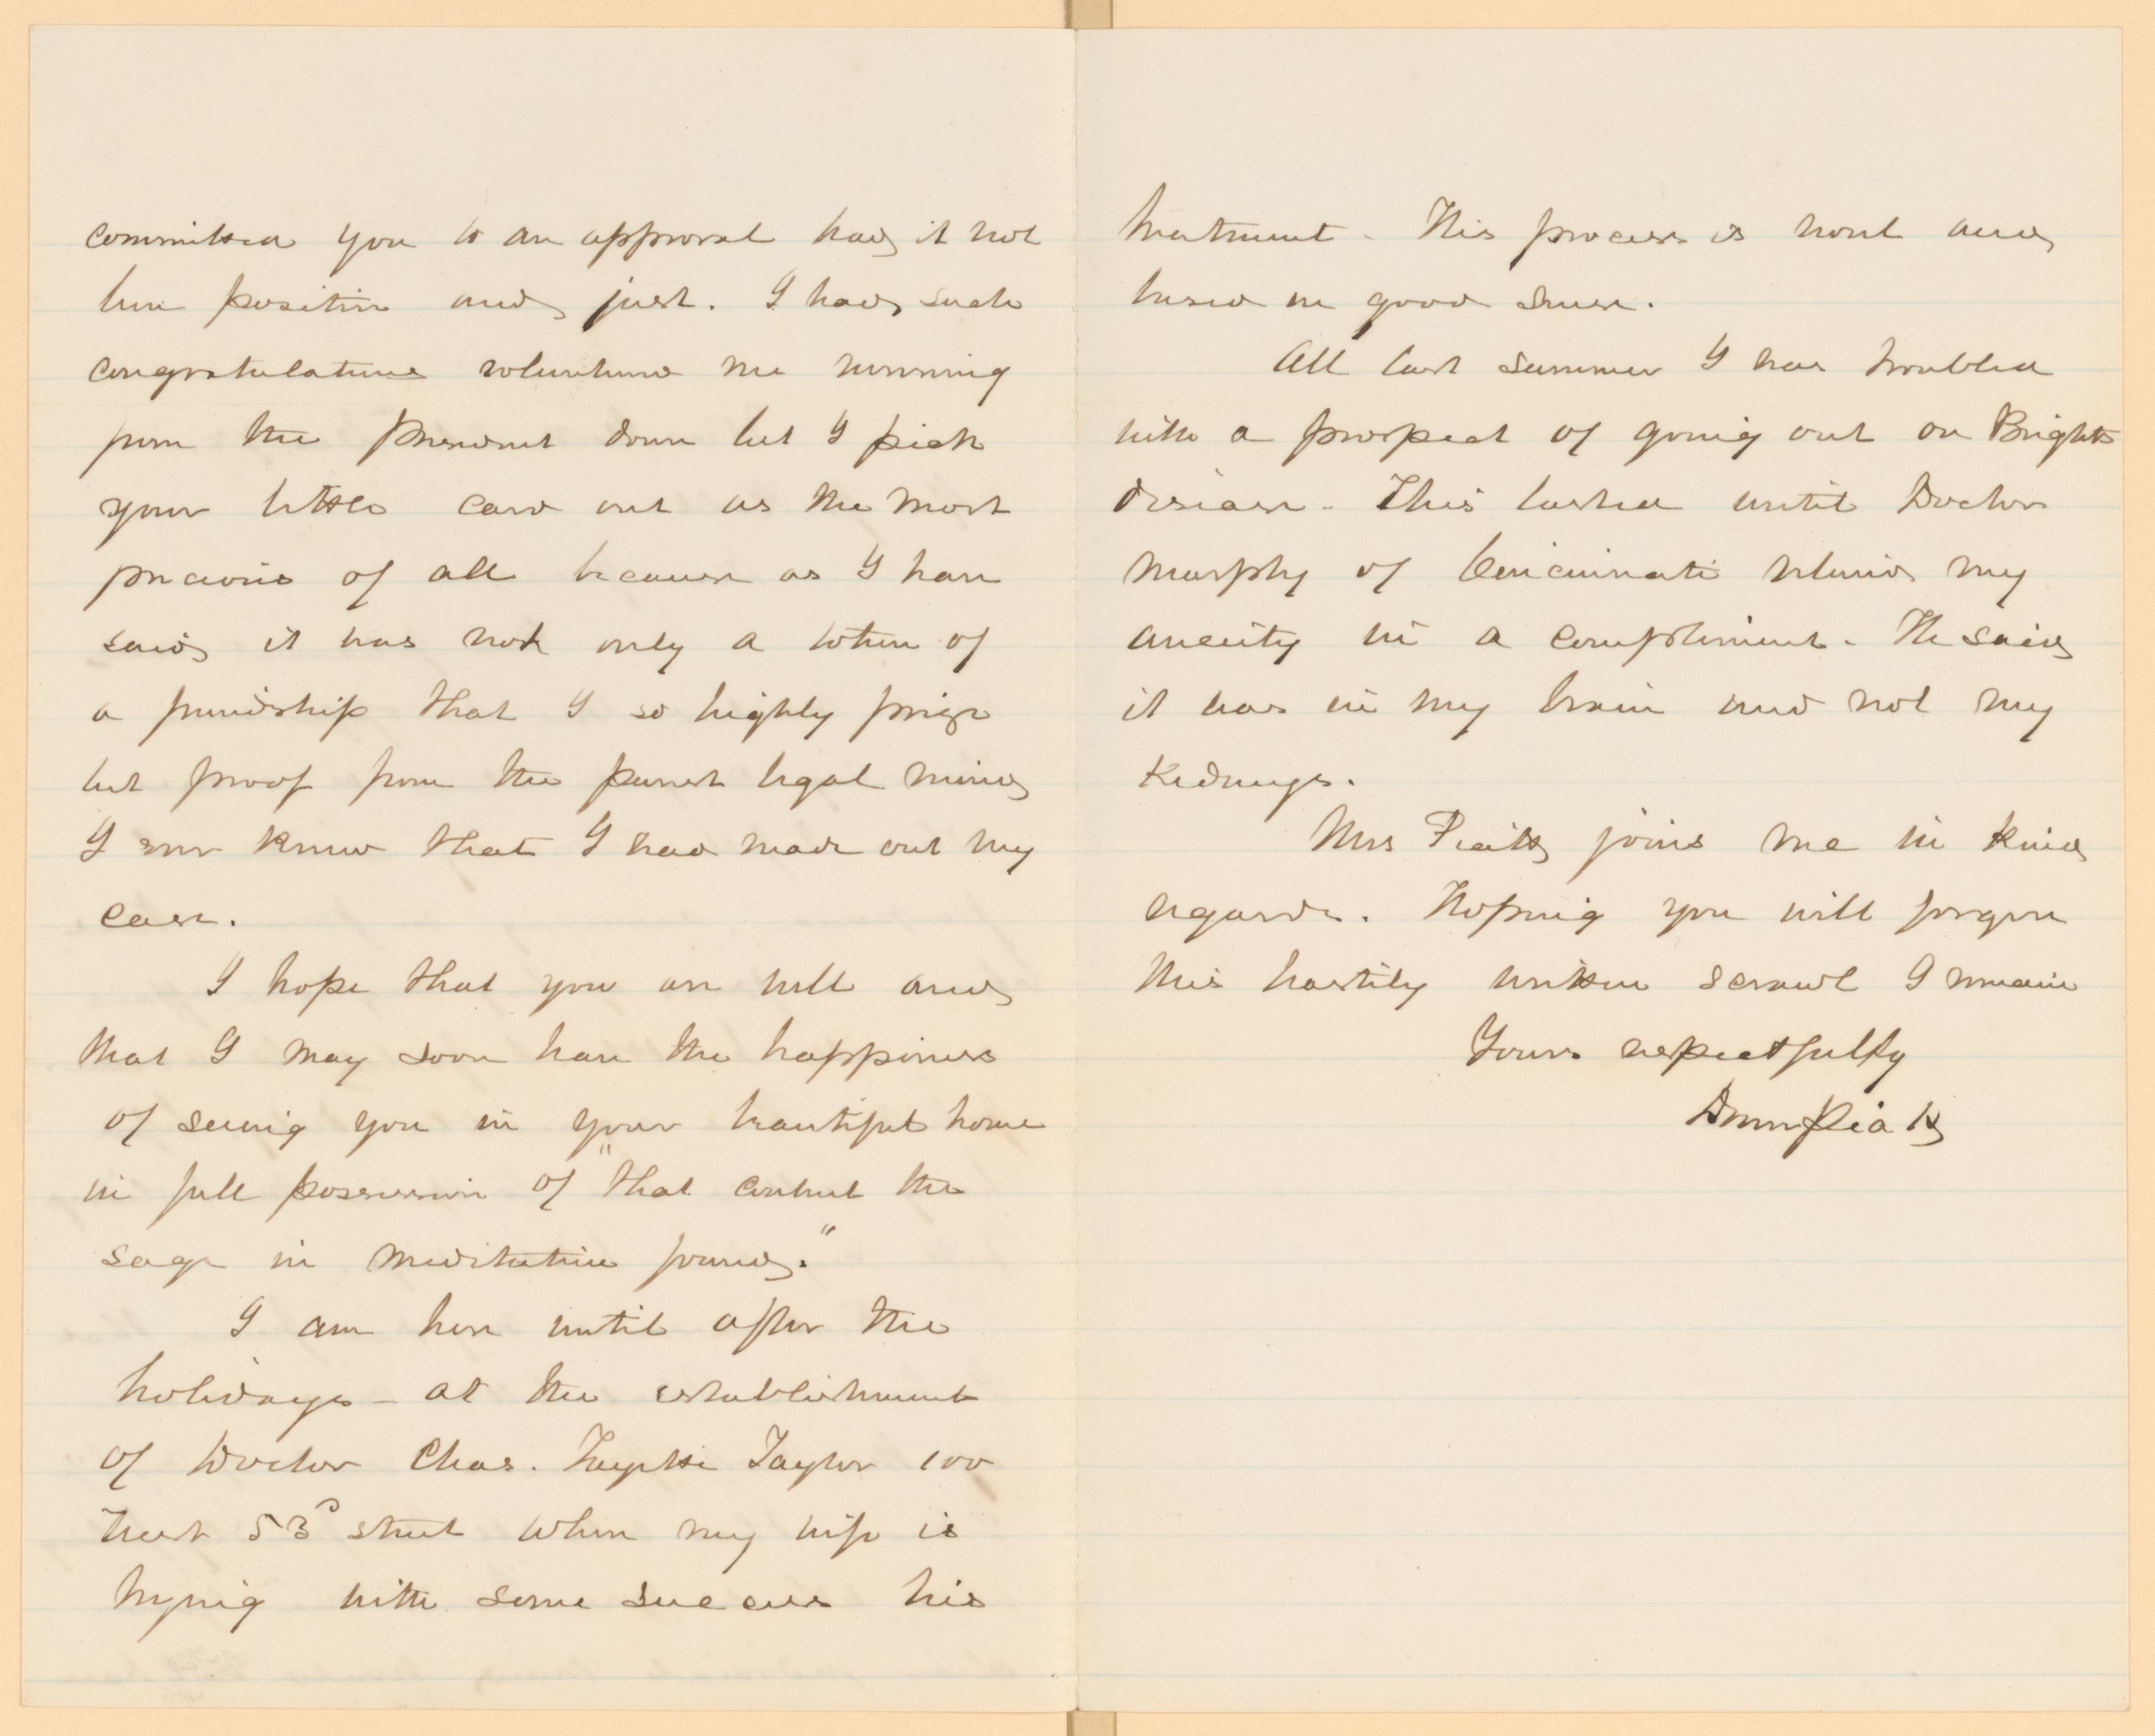 committed you to an approval had it not
been positive and just. I had such
congratulations volunteered me running
from the President down but I pick
your little card out as the most
precious of all because as I have
said it was not only a token of
a friendship that I so highly prize
but proof from the purest legal mind
I ever knew that I had made out my
case.
I hope that you are well and
that I may soon have the happiness
of seeing you in your beautiful home
in full possession of "that content the
sage in meditation found."
I am here until after the
holidays - at the establishment
of Doctor Chas. Taylor 100
West 53d street where my wife is
trying with some success his
treatment - This process is novel and
based on good sense.
All last summer I was troubled
with a prospect of going out on Brights
disease - This lasted until Doctor
Murphy of Cincinnati relieved my
anxiety in a compliment - He said
it was in my brain and not my
Kidneys.
Mrs Piatt joins me in kind
regards. Hoping you will forgive
this hastily written scrawl I remain
Yours respectfully
Donn Piatt